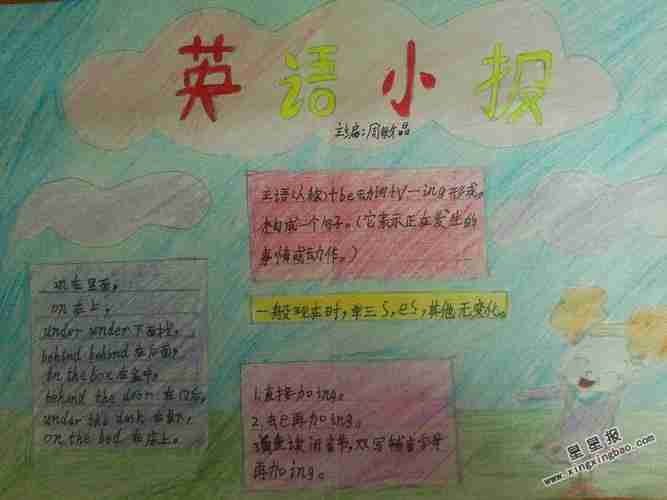 英语小报
主编:周敏晶
主语(人称)+be动词+V-ing形式。
构成一个句子。(它表示正在发生的
事情或动作。)
in在里面,
on在上,
under under下面找,
behind behind在后面,
in the box在盒中。
behind the door在门后,
under the desk在桌下,
on the bed在床上。
一般现在时,单三S,es,其他无变化。
1.直接加ing。
2.去e再加ing。
3.重读闭音节,双写辅音字母
再加ing。
星星报
www.xingxingbao.com